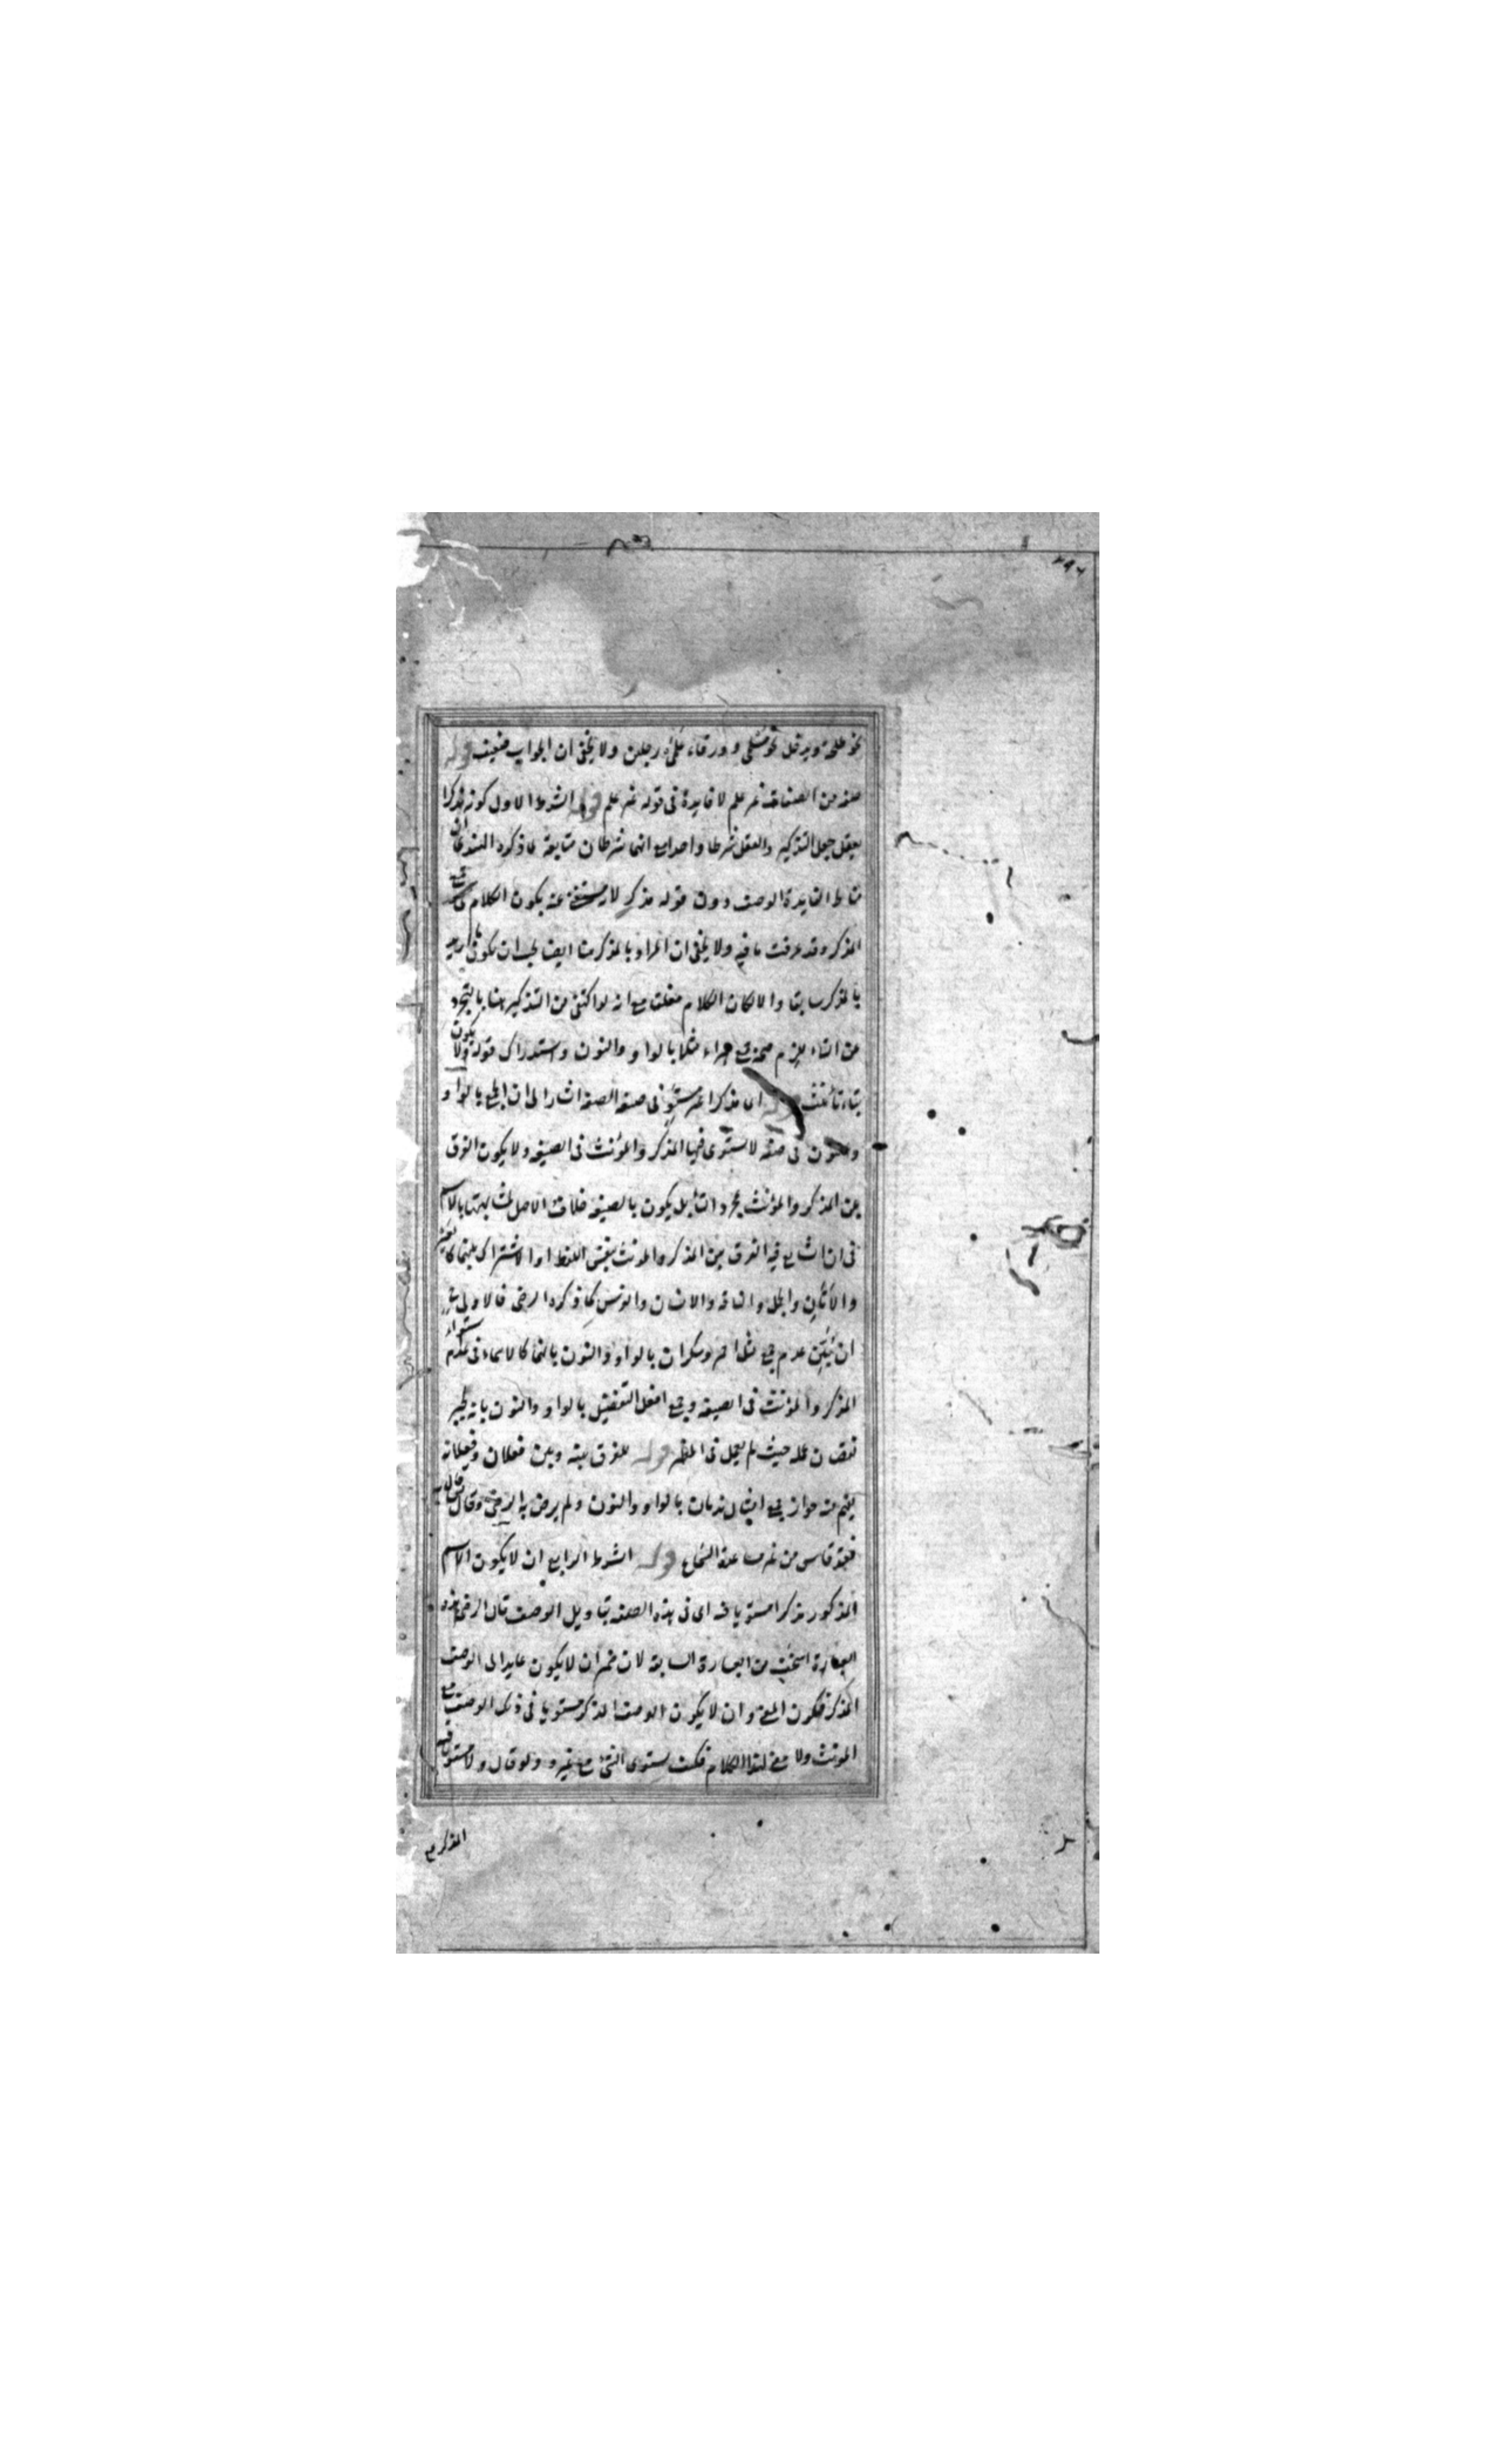 نحو طلحة ويدخل نحو سلمى وورقاء علمى رجلين ولا يخفى ان الجواب ضعيف قوله
صفة من الصفات غير علم لا فايدة فى قوله غير علم قوله الشرط الاول كونه مذكرا
يعقل جعل التذكير والعقل شرطا واحدا مع انهما شرطان متابعة لما ذكره الهندى ان
مناط الفايدة الوصف دون قوله مذكر لا يستغنى عنه بكون الكلام فى جمع
المذكر وقد عرفت ما فيه ولا يخفى ان المراد بالمذكر هنا ايضا يجب ان يكون ما اريد
بالمذكر سابقا والا لكان الكلام مع انه لو اكتفى من التذكير هنا بالتجرد
عن التاء يلزم صحة جمع حمراء مثلا بالواو والنون واستدراك قوله ولا يكون
بتاء تأنيث قوله اى مذكرا غير مستو فى صيغة الصفة اشار الى ان الجمع بالواو و
والنون فى صفة لا يستوى فيها المذكر والمؤنث فى الصيغة ولا يكون الفرق
بين المذكر والمؤنث بمجرد التاء بل يكون بالصيغة خلاف الاصل لمشابهتها بالاسم
فى ان الشايع فيه الفرق بين المذكر والمؤنث بنفس اللفظ او الاشتراك بينهما كالعير
والاتان والجمل والناقة والانسان والفرس كما ذكره الرضى فالاولى
ان يبين عدم جمع مثل احمر وسكران بالواو والنون بانهما كالاسماء فى عدم استواء
المذكر والمؤنث فى الصيغة وجمع افعل التفضيل بالواو والنون بانه لجبر
نقصان عمله حيث لم يعمل فى المظهر قوله للفرق بينه وبين فعلان وفعلانة
يفهم منه جواز جمع امثال ندمان بالواو والنون ولم يرض به الرضى وقال
فعند قاس من غير مساعدة السماع قوله الشرط الرابع ان لا يكون الاسم
المذكور مذكرا مستويا فيه اى فى هذه الصفة بتاويل الوصف قال الرضى هذه
العبارة اسخف من العبارة السابقة لان ضمير ان لا يكون عايد الى الوصف
المذكر فيكون المعنى وان لا يكون الوصف المذكر مستويا فى ذلك الوصف مع
المؤنث ولا معنى لهذا الكلام فكيف يستوى الشئ مع غيره ولو قال ولا مستويا فيه
المذكر مع